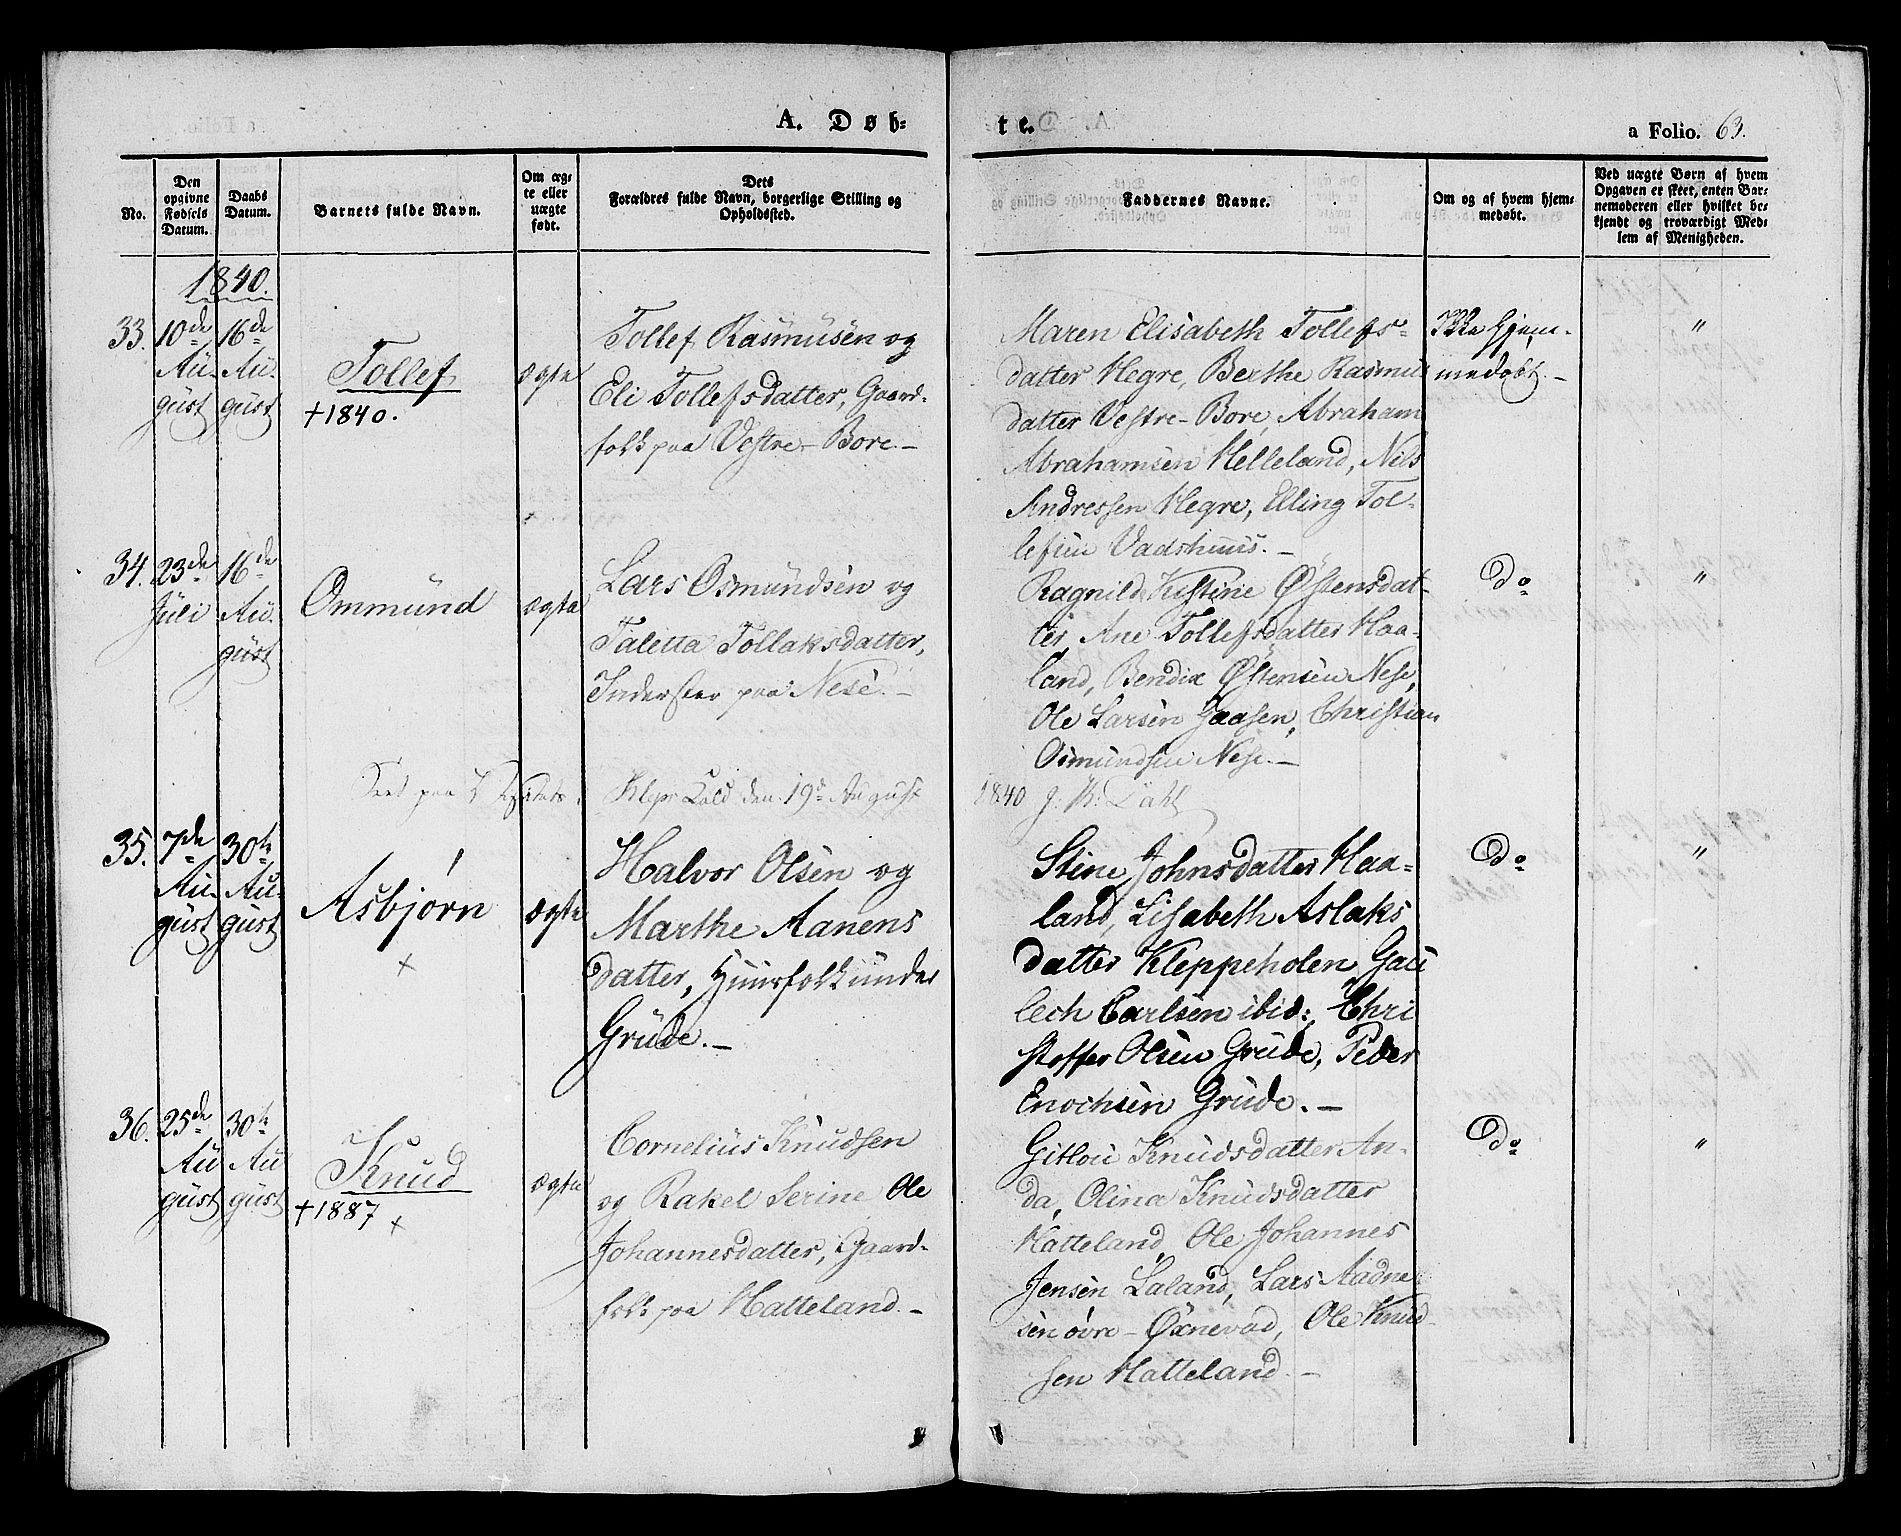 A. Døb-
te.
a Folio. 63.
No.
Den opgivne Fødsels Datum.
Daabs Datum.
Barnets fulde Navn.
Om ægte eller uægte født.
Dets
Forældres fulde Navn, borgerlige Stilling og
Opholdssted.
Faddernes Navne.
Om og af hvem hjem-
medøbt.
Ved uægte Børn af hvem
Opgaven er skeet, enten Bar-
nemoderen eller hvilket be-
kjendt og troværdigt Med-
lem af Menigheden.
1840.
33.
10de Au-
gust
16de Au-
gust
Tollef
+1840.
ægte
Tollef Rasmusen og
Eli Tollefsdatter, Gaard-
folk paa Vestre-Bore.-
Maren Elisabeth Tollefs-
datter Hegre, Berthe Rasmus
datter Vestre-Bore, Abraham
Abrahamsen Helleland, Nils
Andressen Hegre, Elling Tol-
lefsen Vadshuus.-
Ikke hjem-
medøbt.-
"
34.
23de
Juli
16de
Au-
gust
Ommund
ægte
Lars Osmundsen og
Taletta Tollaksdatter,
Inderster paa Nese.-
Ragnild Kistine Østensdat-
ter, Ane Tollefsdatter Haa-
land, Bendix Østensen Nese,
Ole Larsen Gaasen, Christian
Osmundsen Nese.-
do
"
Seet paa
den 19de August
1840
35.
7de
Au-
gust
30te
Au-
gust
Asbjørn
+
ægte
Halvor Olsen og
Marthe Aanens
datter, Huusfolk under
Grude.-
Stine Johnsdatter Haa-
land, Lisabeth Aslaks
datter Kleppeholen, Gau
lech Carlsen ibid:, Chri
stoffer Olsen Grude, Peder
Enochsen Grude.-
do
"
36.
25de
Au
gust
30te
Au
gust
Knud
+1887
+
ægte
Cornelius Knudsen
og Rakel Serine Ole
Johannesdatter, Gaard-
folk paa Hatteland.-
Gitlou Knudsdatter An-
da, Olina Knudsdatter
Hatteland, Ole Johannes
Jensen Laland, Lars Aadne
sen øvre-Øxnevad, Ole Knud-
sen Hatteland.-
do
"